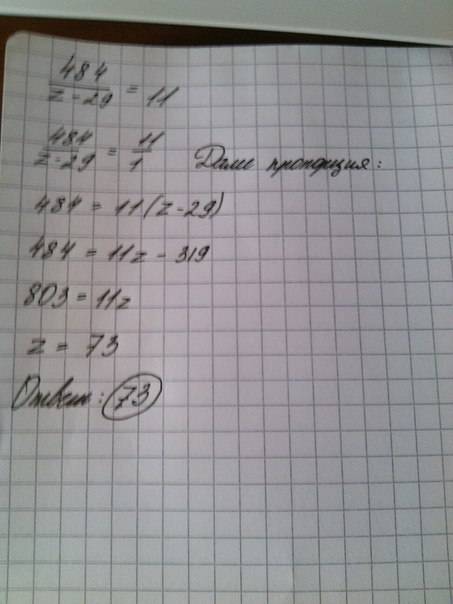 484/(z - 29) = 11
484/(z - 29) = 11/1 Далее пропорция:
484 = 11(z - 29)
484 = 11z - 319
803 = 11z
z = 73
Ответ: 73